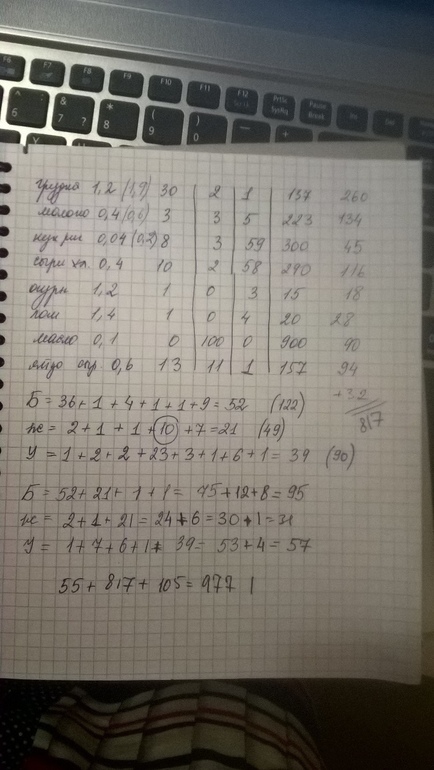 F6 F7 F8 F9 F10 F11 F12 PrtSc SysRq Pause Break
^ 6 & 7 ? * 8 ( 9 ) 0 — +
грудка 1,2 30 2 1 137 260
молоко 0,4 3 3 5 223 134
0,04 (0,2) 8 3 59 300 45
0,4 10 2 58 290 116
огурц 1,2 1 0 3 15 18
пом 1,4 1 0 4 20 28
масло 0,1 0 100 0 900 90
яйцо 0,6 13 11 1 157 94
+32
817
Б = 36+1+4+1+1+9=52 (122)
ж = 2+1+1+10+7=21 (49)
У = 1+2+2+23+3+1+6+1= 39 (90)
Б = 52+21+1+1= 75+12+8=95
ж = 2+1+21=24+6=30+1=31
У = 1+7+6+1+39= 53+4=57
55+817+105=977